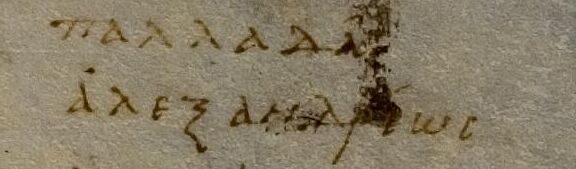 παλλαδᾶ
ἀλεξανδρέως